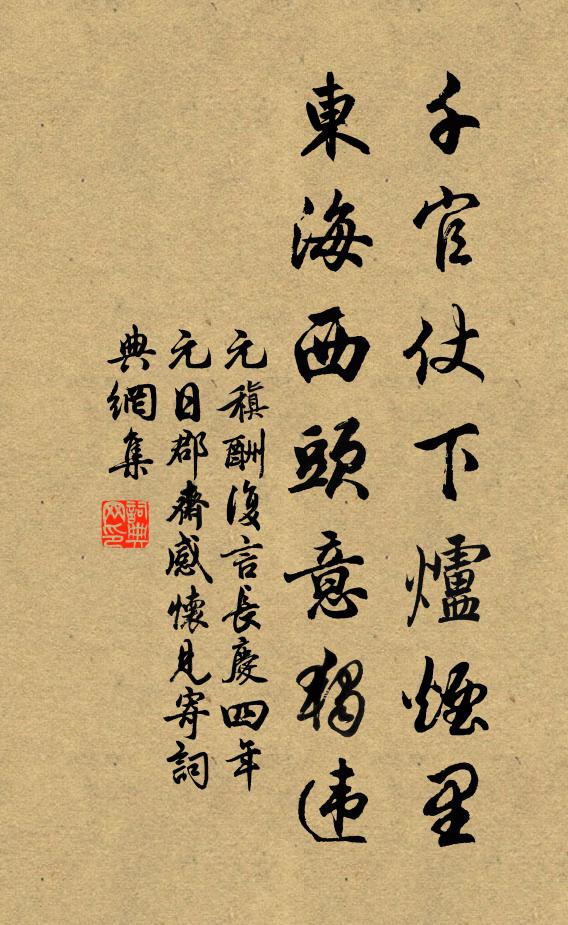 千官仗下爐煙里
東海西頭意獨违
元稹酬復言長慶四年
元日郡齋感懷見寄詞
典網集
詞典
网印